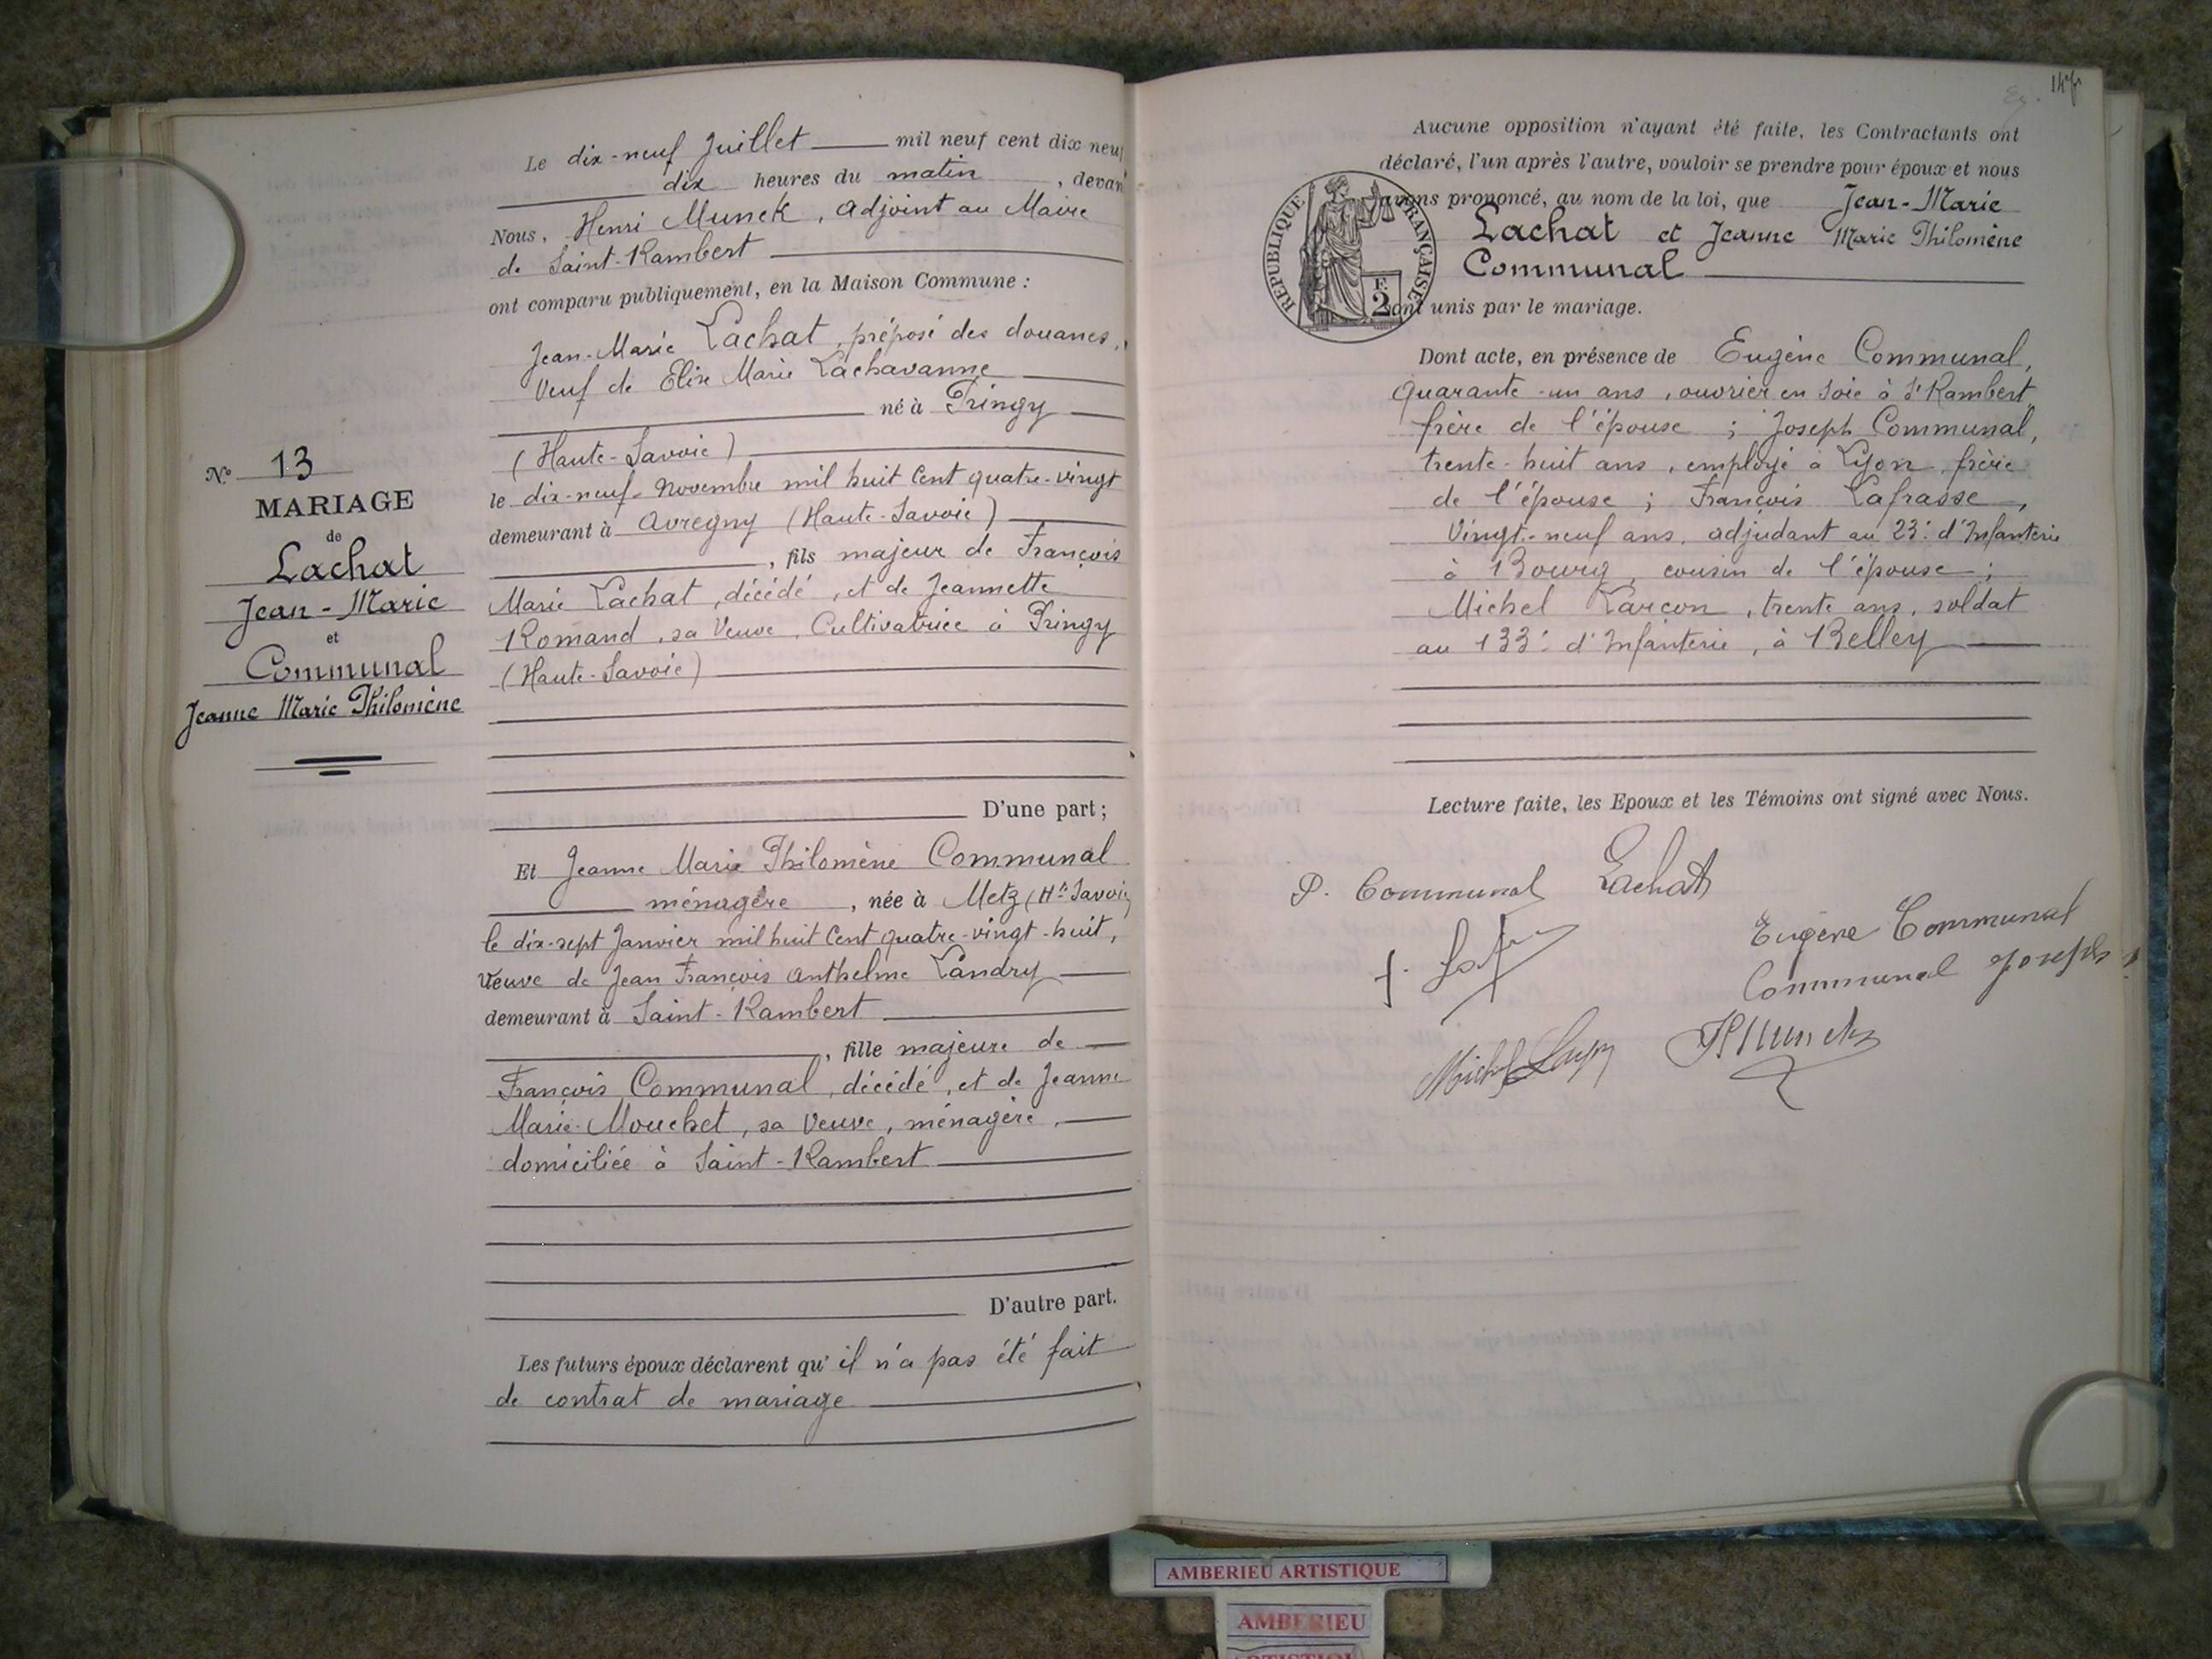 N° 13
MARIAGE
de
Lachat
Jean-Marie
et
Communal
Jeanne Marie Philomène
Le dix-neuf Juillet mil neuf cent dix neuf
dix heures du matin, devant
Nous, Henri Munck, adjoint au Maire
de Saint-Rambert
ont comparu publiquement, en la Maison Commune :
Jean-Marie Lachat, préposé des douanes,
Veuf de Elise Marie Lachavanne
né à Pringy
(Haute-Savoie)
le dix-neuf Novembre mil huit Cent quatre-vingt
demeurant à Avregny (Haute-Savoie)
, fils majeur de François
Marie Lachat, décédé, et de Jeannette
Romand, sa Veuve, Cultivatrice à Pringy
(Haute-Savoie)
D'une part ;
Et Jeanne Marie Philomène Communal
ménagère, née à Metz (Hte Savoie)
le dix-sept Janvier mil huit Cent quatre-vingt-huit,
Veuve de Jean François Anthelme Landry
demeurant à Saint-Rambert
, fille majeure de
François Communal, décédé, et de Jeanne
Marie Mouchet, sa Veuve, ménagère,
domiciliée à Saint-Rambert
D'autre part.
Les futurs époux déclarent qu'il n'a pas été fait
de contrat de mariage
Aucune opposition n'ayant été faite, les Contractants ont
déclaré, l'un après l'autre, vouloir se prendre pour époux et nous
avons prononcé, au nom de la loi, que Jean-Marie
Lachat et Jeanne Marie Philomène
Communal
sont unis par le mariage.
REPUBLIQUE FRANÇAISE
F.
2
Dont acte, en présence de Eugène Communal,
quarante-un ans, ouvrier en soie à St Rambert,
frère de l'épouse ; Joseph Communal,
trente-huit ans, employé à Lyon, frère
de l'épouse ; François Lafrasse,
Vingt-neuf ans, adjudant au 23e d'Infanterie
à Bourg, cousin de l'épouse ;
Michel Larçon, trente ans, soldat
au 133e d'Infanterie, à Belley
Lecture faite, les Epoux et les Témoins ont signé avec Nous.
P. Communal Lachat
Eugène Communal
Communal Joseph
Michel
HMunck
AMBERIEU ARTISTIQUE
AMBERIEU
ARTISTIQUE